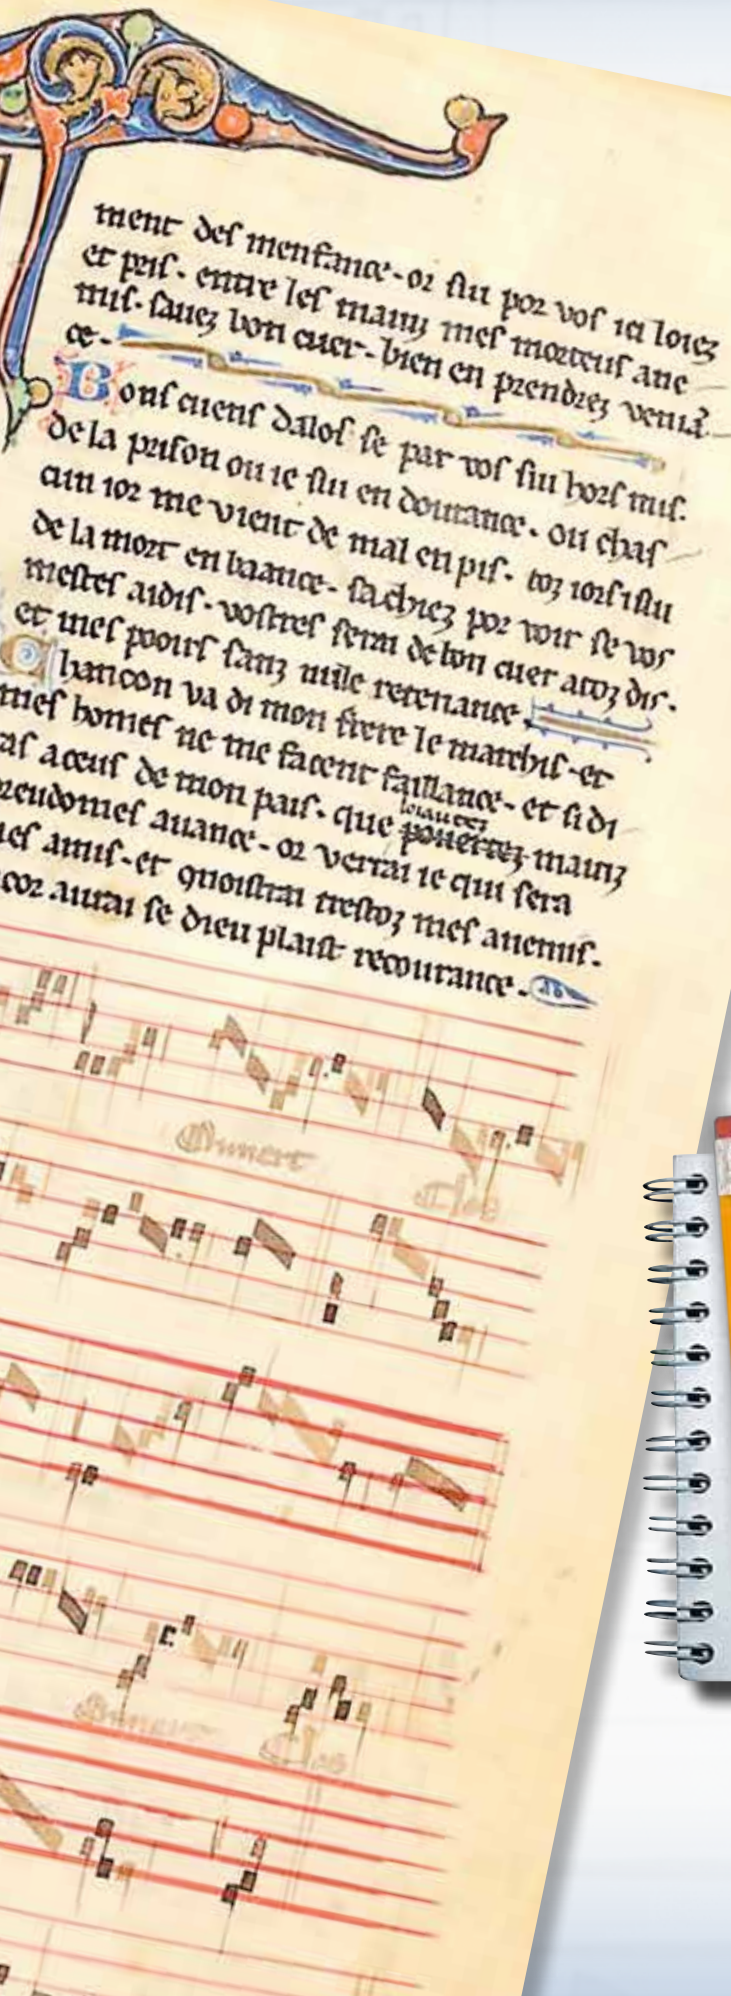 ment des menfance. or sui por vos ici loiez
et pris. entre les mainz mes morteus ane
mis. sauez bon cuer. bien en prendrez venia
ce.
Bons cuens dalos se par vos sui hors mis.
de la prison ou ie sui en doutance. ou chas
cun ior me vient de mal en pis. toz iors i sui
de la mort en baance. sachiez por voir se vos
mestes aidis. vostres serai de bon cuer a toz dis.
et mes pooirs sanz nule retenance.
Chancon va di mon frere le marchis. et
mes homes ne me facent faillance. et si di
ras a ceus de mon pais. que loiautez pouertez mainz
preudomes auance. or verrai ie qui sera
mes amis. et quoistrai trestoz mes anemis.
encor aurai se dieu plaist recourance.
Ouuert
Clos
Ouuert
Clos